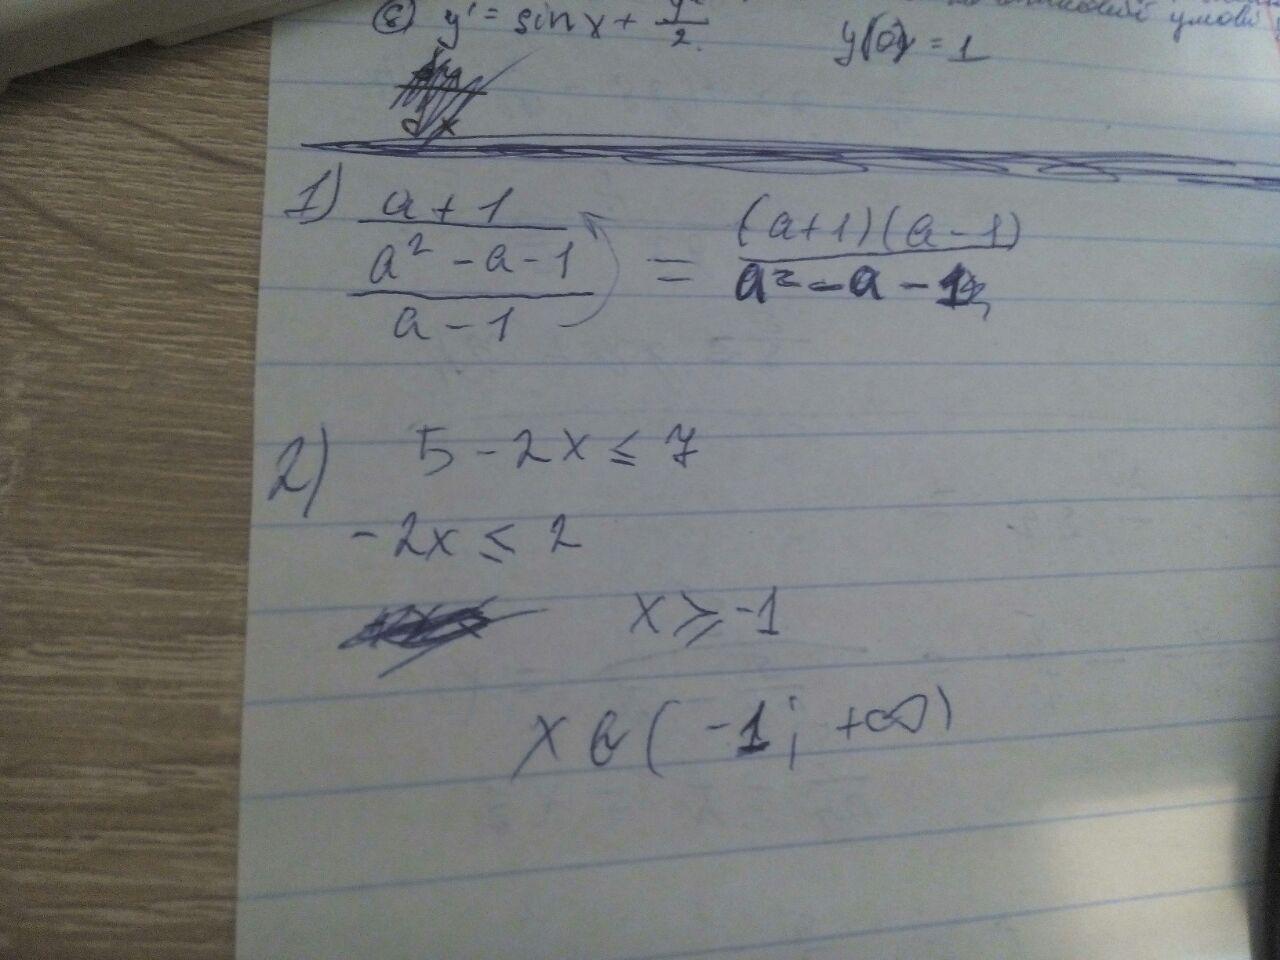 ③ y' = sin x + y²/2 y(0) = 1
умові
dx
1) (a+1)/((a²-a-1)/(a-1)) = (a+1)(a-1)/(a²-a-1)
2) 5 - 2x ≤ 7
-2x ≤ 2
x ≥ -1
x ∈ (-1; +∞)